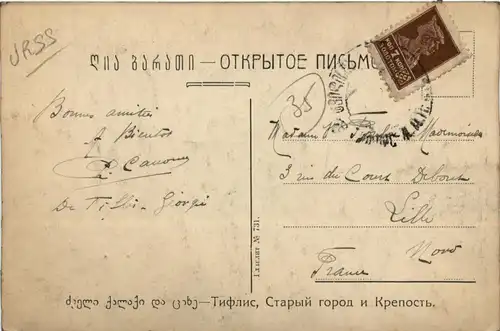 URSS
ღია ბარათი — ОТКРЫТОЕ ПИСЬМО
35
Bonnes amitiés
A Bientôt
De Tiflis - Géorgie
Madame Mademoiselle
3 rue du Court Debout
Lille
Nord
France
Главлит № 731.
ძველი ქალაქი და ციხე — Тифлис, Старый город и Крепость.